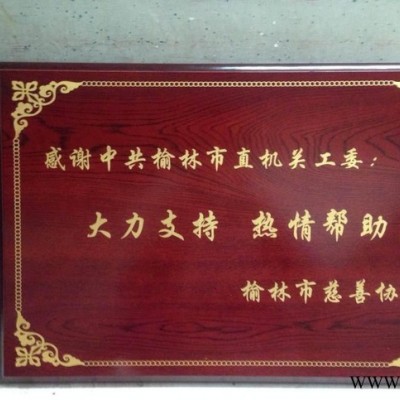 感谢中共榆林市直机关工委：
大力支持 热情帮助
榆林市慈善协
www.